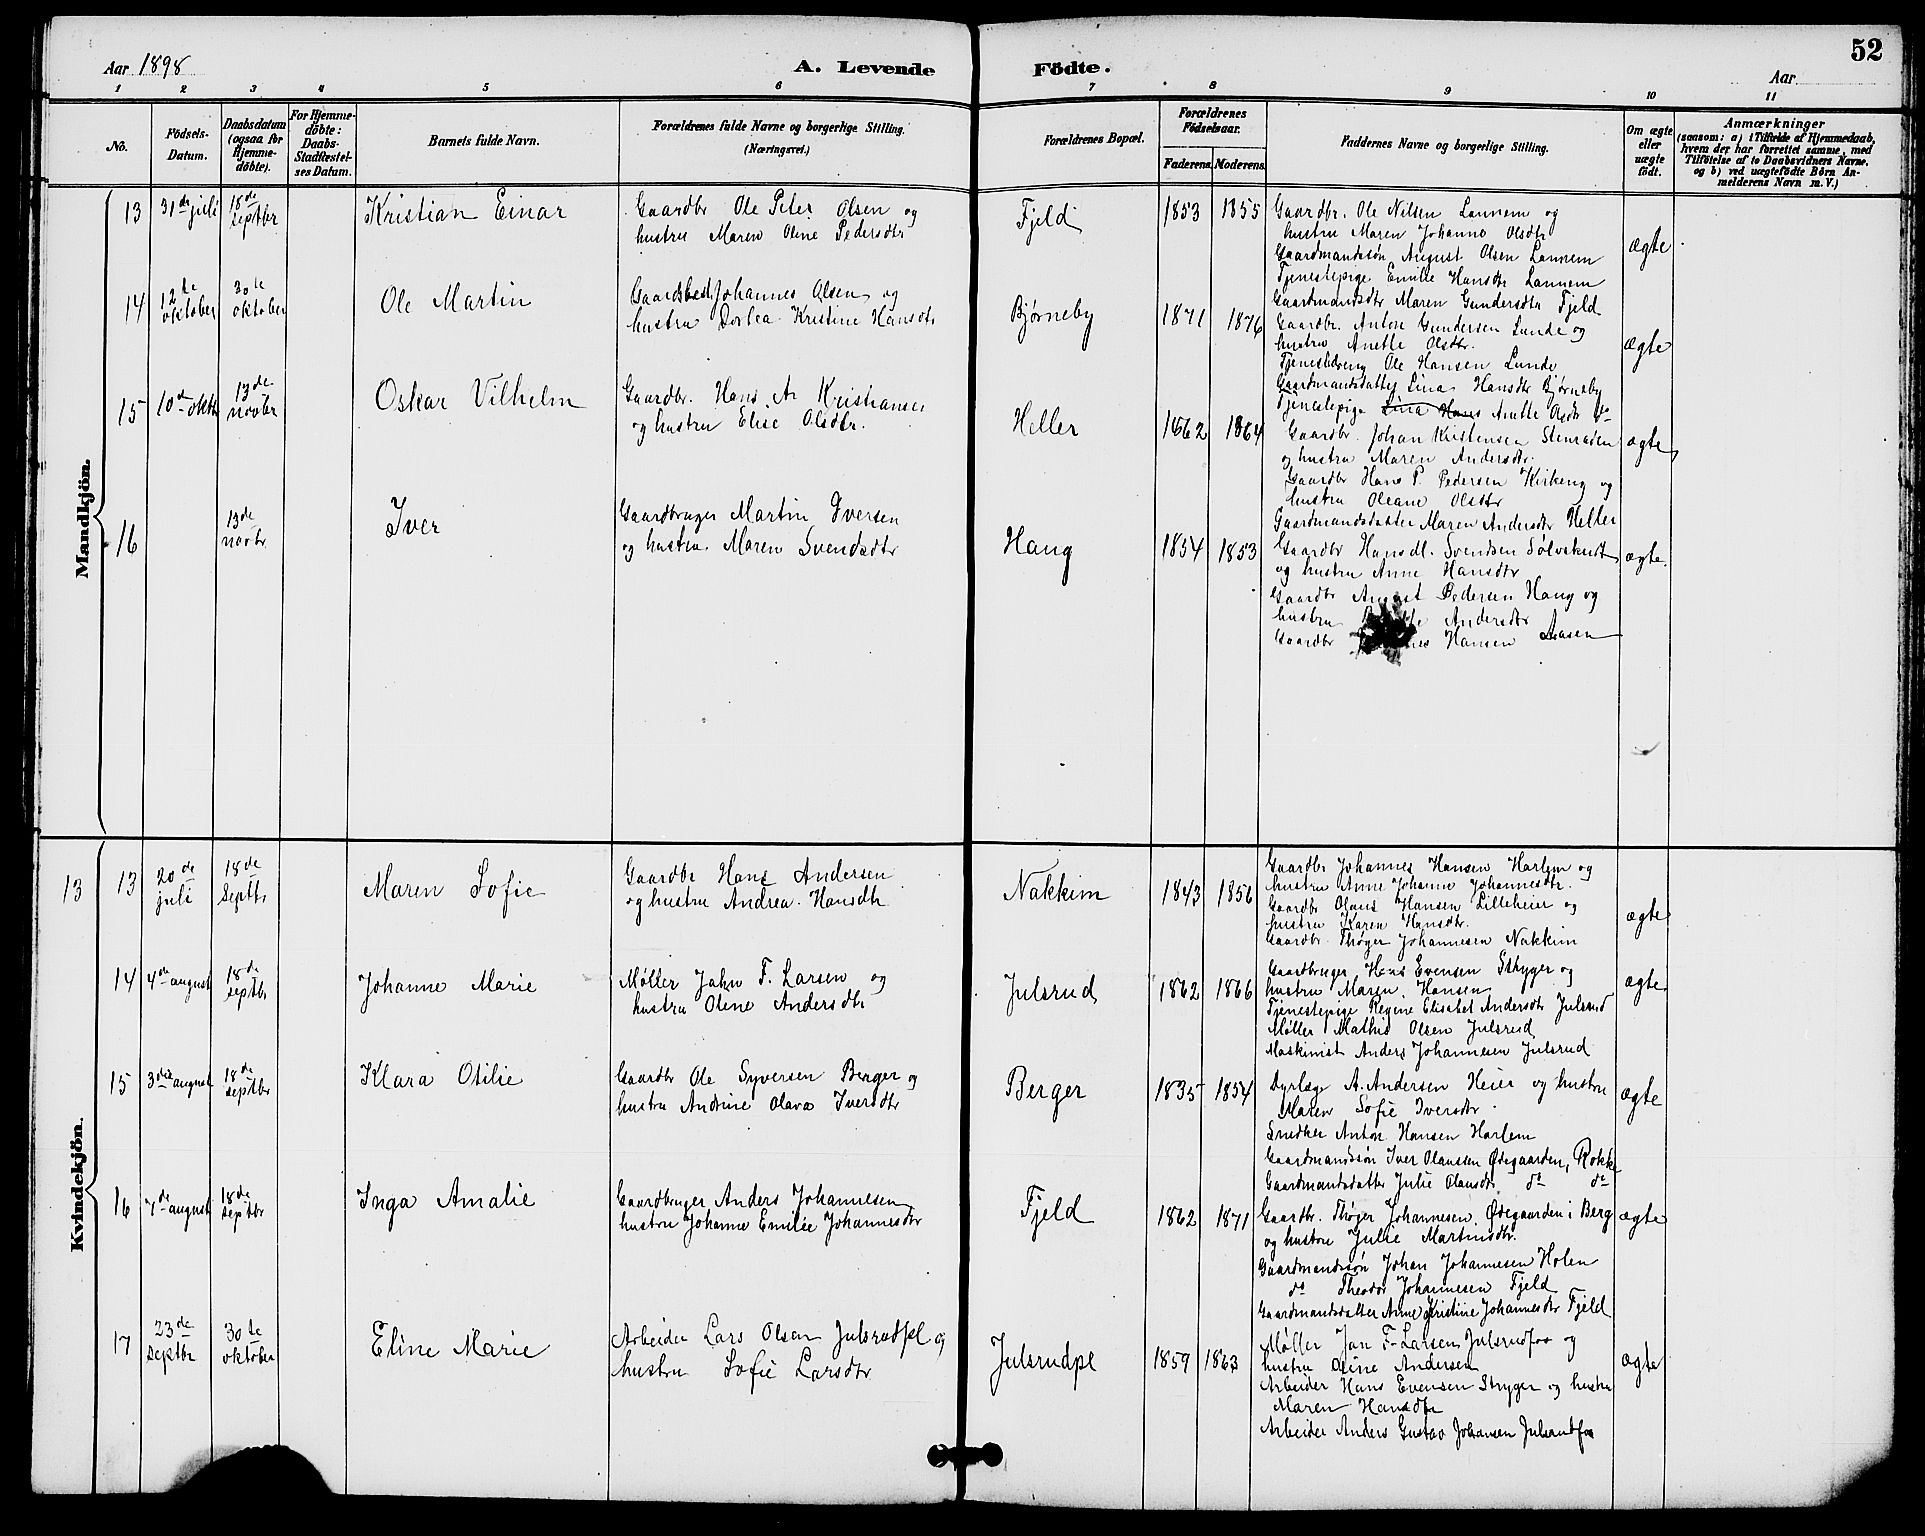 52
Aar 1898
A. Levende Födte.
Aar
1 2 3 4 5 6 7 8 9 10 11
No.
Födsels-Datum.
Daabsdatum (ogsaa for Hjemme-döbte).
For Hjemme-döbte: Daabs-Stadfæstel-ses Datum.
Barnets fulde Navn.
Forældrenes fulde Navne og borgerlige Stilling.
(Næringsvei.)
Forældrenes Bopæl.
Forældrenes Födselsaar.
Faderens. Moderens.
Faddernes Navne og borgerlige Stilling.
Om ægte eller uægte födt.
Anmærkninger
(saasom: a) i Tilfælde af Hjemmedaab, hvem der har forrettet samme, med Tilföielse af to Daabsvidners Navne, og b) ved uægtefödte Börn An-melderens Navn m. V.)
Mandkjön.
13 31de juli 18de septbr Kristian Einar
Gaardbr Ole Peter Olsen og
hustru Maren Oline Pedersdtr
Fjeld 1853 1855
Gaardbr. Ole Nilsen Lannem og
hustru Maren Johanne Olsdtr
Gaardmandssøn August Olsen Lannem
Tjenestepige Emilie Hansdtr Lannem
Gaardmandsdtr Maren Gundersdtr Fjeld
ægte
14 12te oktober 30te oktober Ole Martin
Johannes Olsen og
hustru Dortea Kristine Hansdtr
Bjørneby 1871 1876
Gaardbr. Anton Gundersen Lunde og
hustru Anette Olsdtr.
Tjenestedreng Ole Hansen Lunde
Gaardmandsdatter Lina Hansdtr Bjørneby
Tjenestepige Lina Hans Anette Olsdtr do
ægte
15 10de oktbr 13de novbr Oskar Vilhelm
Gaardbr. Hans A. Kristiansen
og hustru Elise Olsdtr.
Heller 1862 1864
Gaardbr. Johan Kristensen Stenraden
og hustru Maren Andersdtr.
Gaardbr Hans P. Pedersen Kirkeng og
hustru Oleane Olsdtr
Gaardmandsdatter Maren Andersdtr Heller
ægte
16 13de novbr Iver
Gaardbruger Martin Iversen
og hustru Maren Svendsdtr
Haug 1854 1853
Gaardbr Hans M. Svendsen Sølvskudt
og hustru Anne Hansdtr
Gaardbr August Pedersen Haug og
hustru Andersdtr
Gaardbr Hansen Aasen
ægte.
Kvindekjön.
13 13 20de juli 18de Septbr Maren Sofie
Gaardbr Hans Andersen
og hustru Andrea Hansdtr
Nakkim 1843 1856
Gaardbr Johannes Hansen Harlem og
hustru Anne Johanne Johannesdtr.
Gaardbr Olaus Hansen Lilleheier og
hustru Karen Hansdtr.
Gaardbr. Thøger Johannesen Nakkim
ægte
14 4de august 18de septbr Johanne Marie
Møller Jahn F. Larsen og
hustru Oline Andersdtr
Julsrud 1862 1866
Gaardbruger Hans Evensen Stryger og
hustru Maren Hansen
Tjenestepige Regine Elisabet Andersdtr Julsrud
Møller Mathis Olsen Julsrud
Maskinist Anders Johannesen Julsrud
ægte
15 3die august 18de septbr Klara Otilie
Gaardbr Ole Syversen Berger og
hustru Andrine Olava Iversdtr
Berger 1835 1854
Dyrlæge A. Andersen Heier og hustru
Maren Sofie Iversdtr
Snedker Anton Hansen Harlem
Gaardmandssøn Iver Olaussen Ødegaarden, Rokke
Gaardmandsdatter Julie Olausdtr do do
ægte
16 7de august 18de septbr Inga Amalie
Gaardbruger Anders Johannesen
hustru Johanne Emilie Johannesdtr
Fjeld 1862 1871
Gaardbr. Thøger Johannesen, Ødegaarden i Berg
og hustru Julie Martinsdtr.
Gaardmandssøn Johan Johannesen Holen
do Theodor Johannesen Fjeld
Gaardmandsdatter Anne Kristine Johannesdtr Fjeld
ægte
17 23de septbr 30te oktober Eline Marie
Arbeider Lars Olsen Julsrudpl og
hustru Sofie Larsdtr
Julsrudpl 1859 1863
Møller Jan F. Larsen Julsrudfos og
hustru Oline Andersen
Arbeider Hans Evensen Stryger og hustru
Maren Hansdtr
Arbeider Anders Gustav Johansen Julsrudfos
ægte